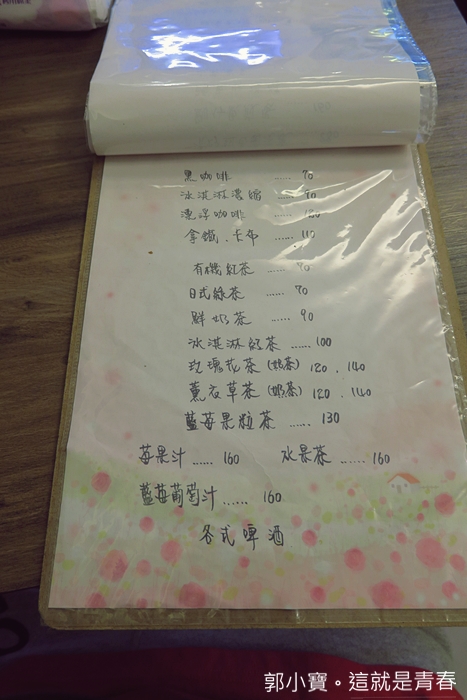 黑咖啡 ...... 70
冰淇淋濃縮 ...... 90
漂浮咖啡 ...... 120
拿鐵.卡布 ...... 110
有機紅茶 ...... 70
日式綠茶 ...... 70
鮮奶茶 ...... 90
冰淇淋紅茶 ...... 100
玫瑰花茶(奶茶) 120 . 140
薰衣草茶(奶茶) 120 . 140
藍莓果粒茶 ...... 130
莓果汁 ...... 160 水果茶 ...... 160
藍莓葡萄汁 ...... 160
各式啤酒
郭小寶。這就是青春